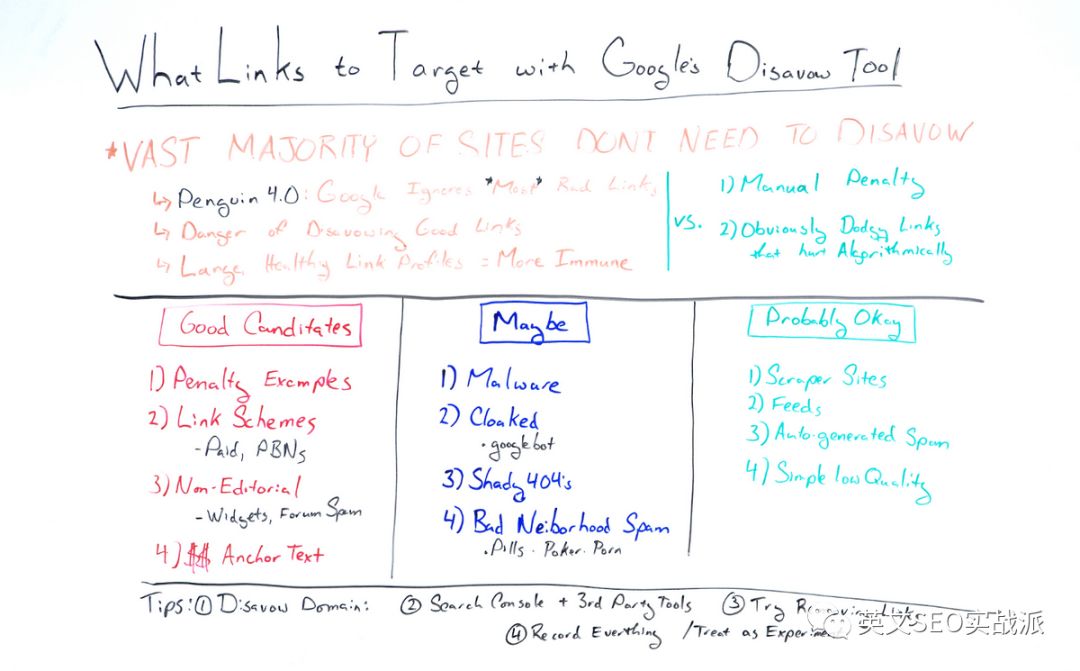 What Links to Target with Google's Disavow Tool
*VAST MAJORITY OF SITES DONT NEED TO DISAVOW
↳ Penguin 4.0: Google Ignores *Most* Bad Links
↳ Danger of Disavowing Good Links
↳ Large, Healthy Link Profiles = More Immune
vs.
1) Manual Penalty
2) Obviously Dodgy Links
that hurt Algorithmically
Good Canditates
1) Penalty Examples
2) Link Schemes
- Paid, PBNs
3) Non-Editorial
- Widgets, Forum Spam
4) $$ Anchor Text
Maybe
1) Malware
2) Cloaked
• googlebot
3) Shady 404's
4) Bad Neiborhood Spam
• Pills • Poker • Porn
Probably Okay
1) Scraper Sites
2) Feeds
3) Auto-generated Spam
4) Simple low Quality
Tips: ① Disavow Domain: ② Search Console + 3rd Party Tools ③ Try Removing Links
④ Record Everthing / Treat as Experiment
英文SEO实战派